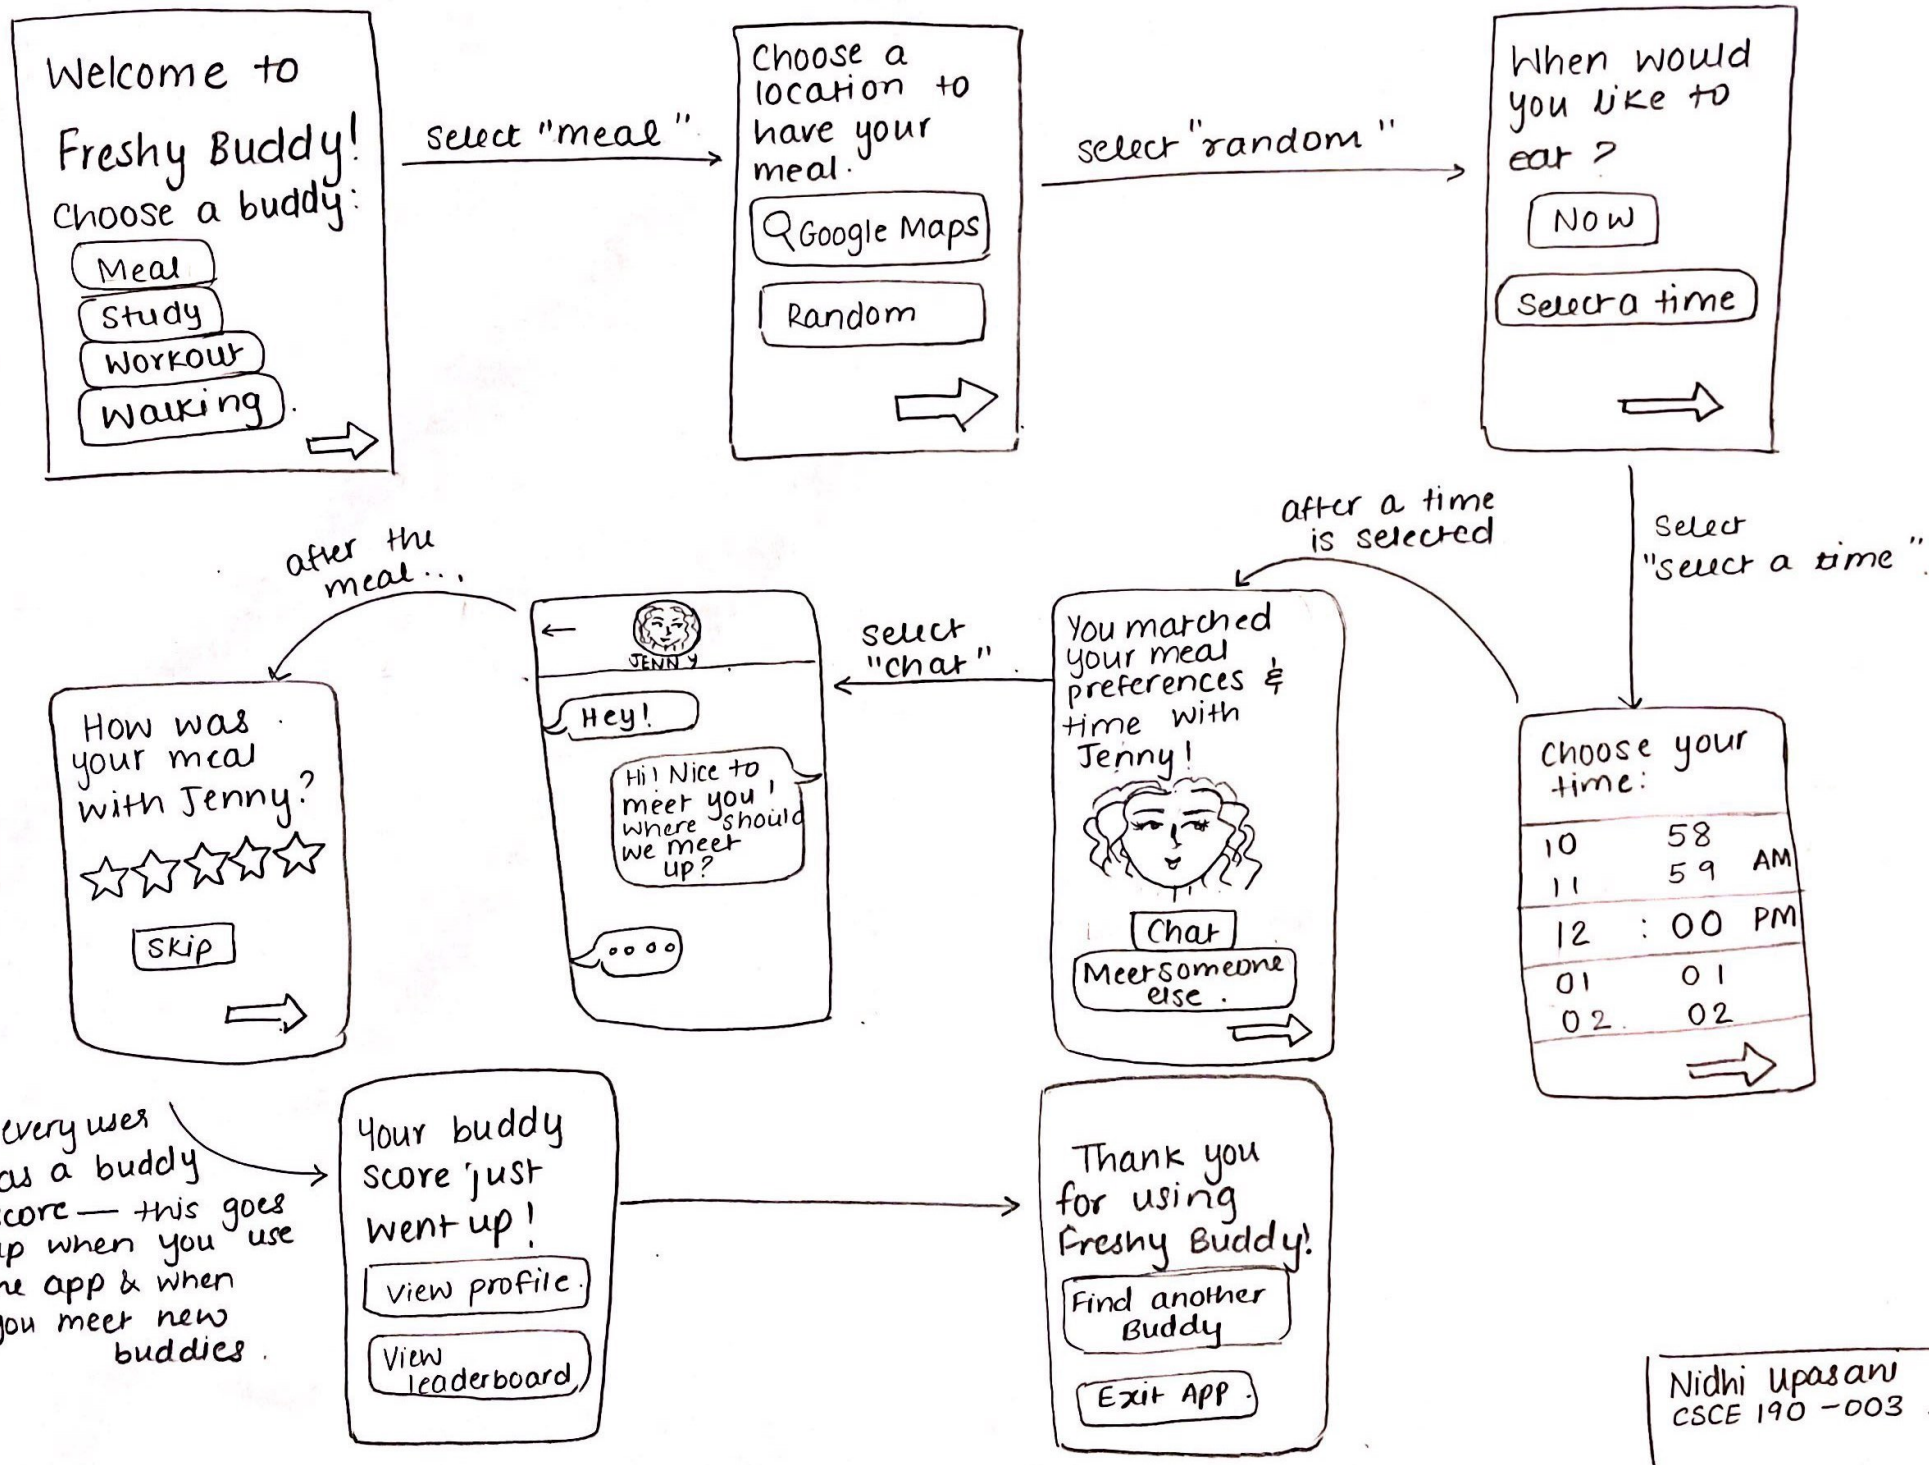 Welcome to
Freshy Buddy!
Choose a buddy:
Meal
Study
Workout
Walking.
select "meal"
Choose a
location to
have your
meal.
Google Maps
Random
select "random"
When would
you like to
eat?
Now
Select a time
select
"select a time"
Choose your
time:
10 58
11 59 AM
12 : 00 PM
01 01
02 02
after a time
is selected
You matched
your meal
preferences &
time with
Jenny!
Chat
Meet someone
else.
select
"chat"
JENNY
Hey!
Hi! Nice to
meet you,
where should
we meet
up?
after the
meal...
How was
your meal
with Jenny?
Skip
every user
as a buddy
core — this goes
p when you use
he app & when
you meet new
buddies.
Your buddy
score just
went up!
View profile.
View
leaderboard
Thank you
for using
Freshy Buddy!
Find another
Buddy
Exit App.
Nidhi Upasani
CSCE 190-003